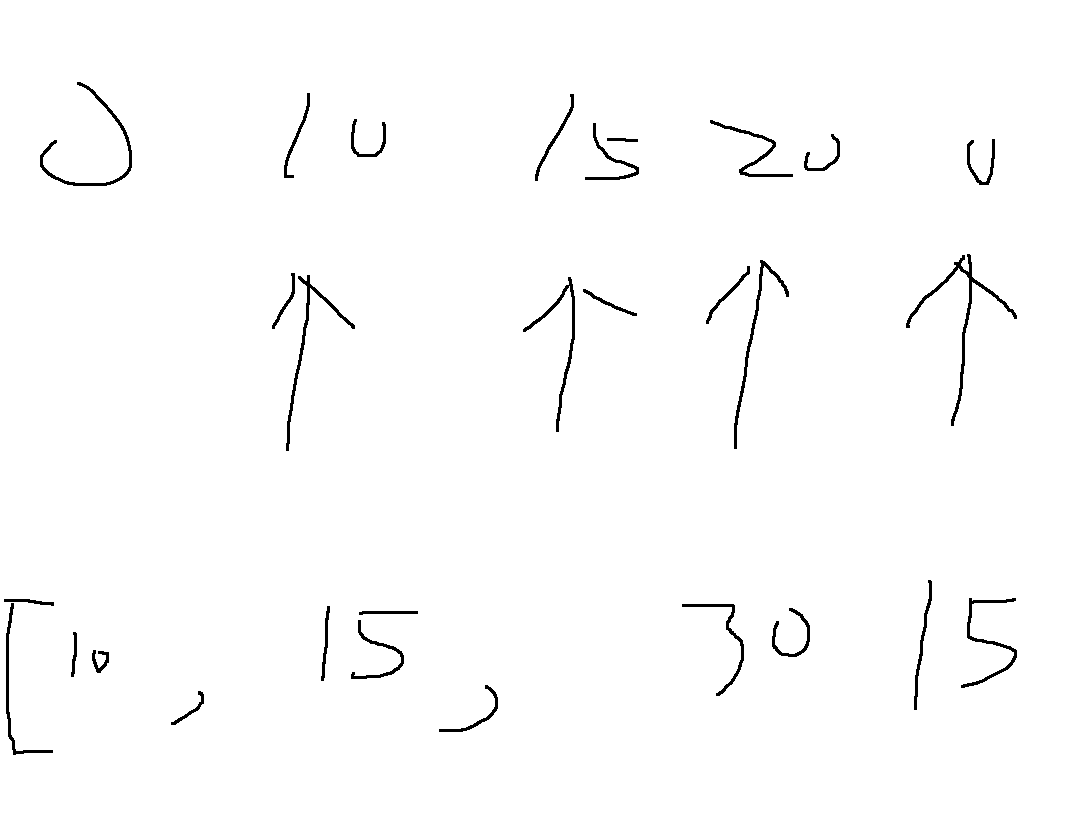 0 10 15 20 0
[10, 15, 30 15